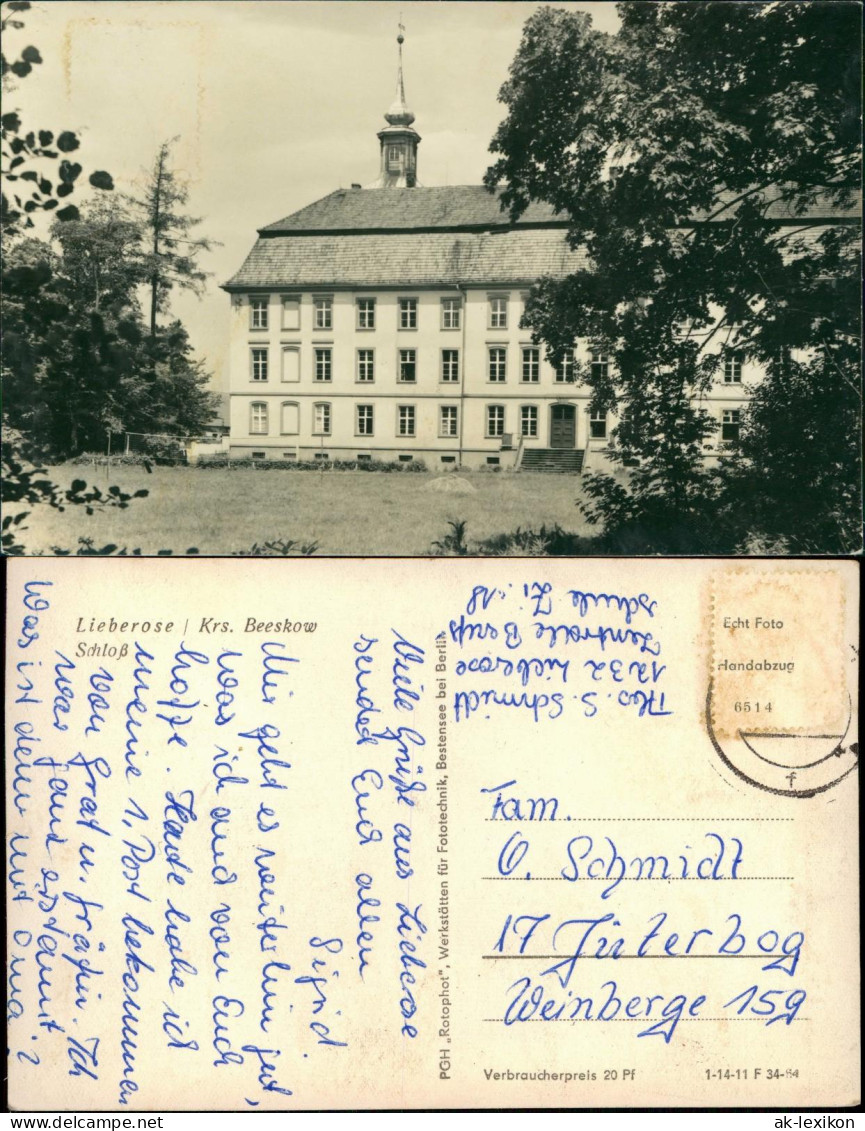 Lieberose / Krs. Beeskow
Schloß
Viele Grüße aus Lieberose
sendet Euch allen
Sigrid.
Mir geht es weiterhin gut,
was ich auch von Euch
hoffe. Heute habe ich
meine 1. Post bekommen
von Graf u. Gräfin. Ich
war ganz erstaunt.
Was ist denn mit Oma?
PGH „Rotophot", Werkstätten für Fototechnik, Bestensee bei Berlin
Abs. S. Schmidt
1232 Lieberose
Zentralle Berufs
schule Zi. 18
Echt Foto
Handabzug
6514
f
Fam.
O. Schmidt
17 Jüterbog
Weinberge 159
Verbraucherpreis 20 Pf
1-14-11 F 34-64
www.delcampe.net
ak-lexikon